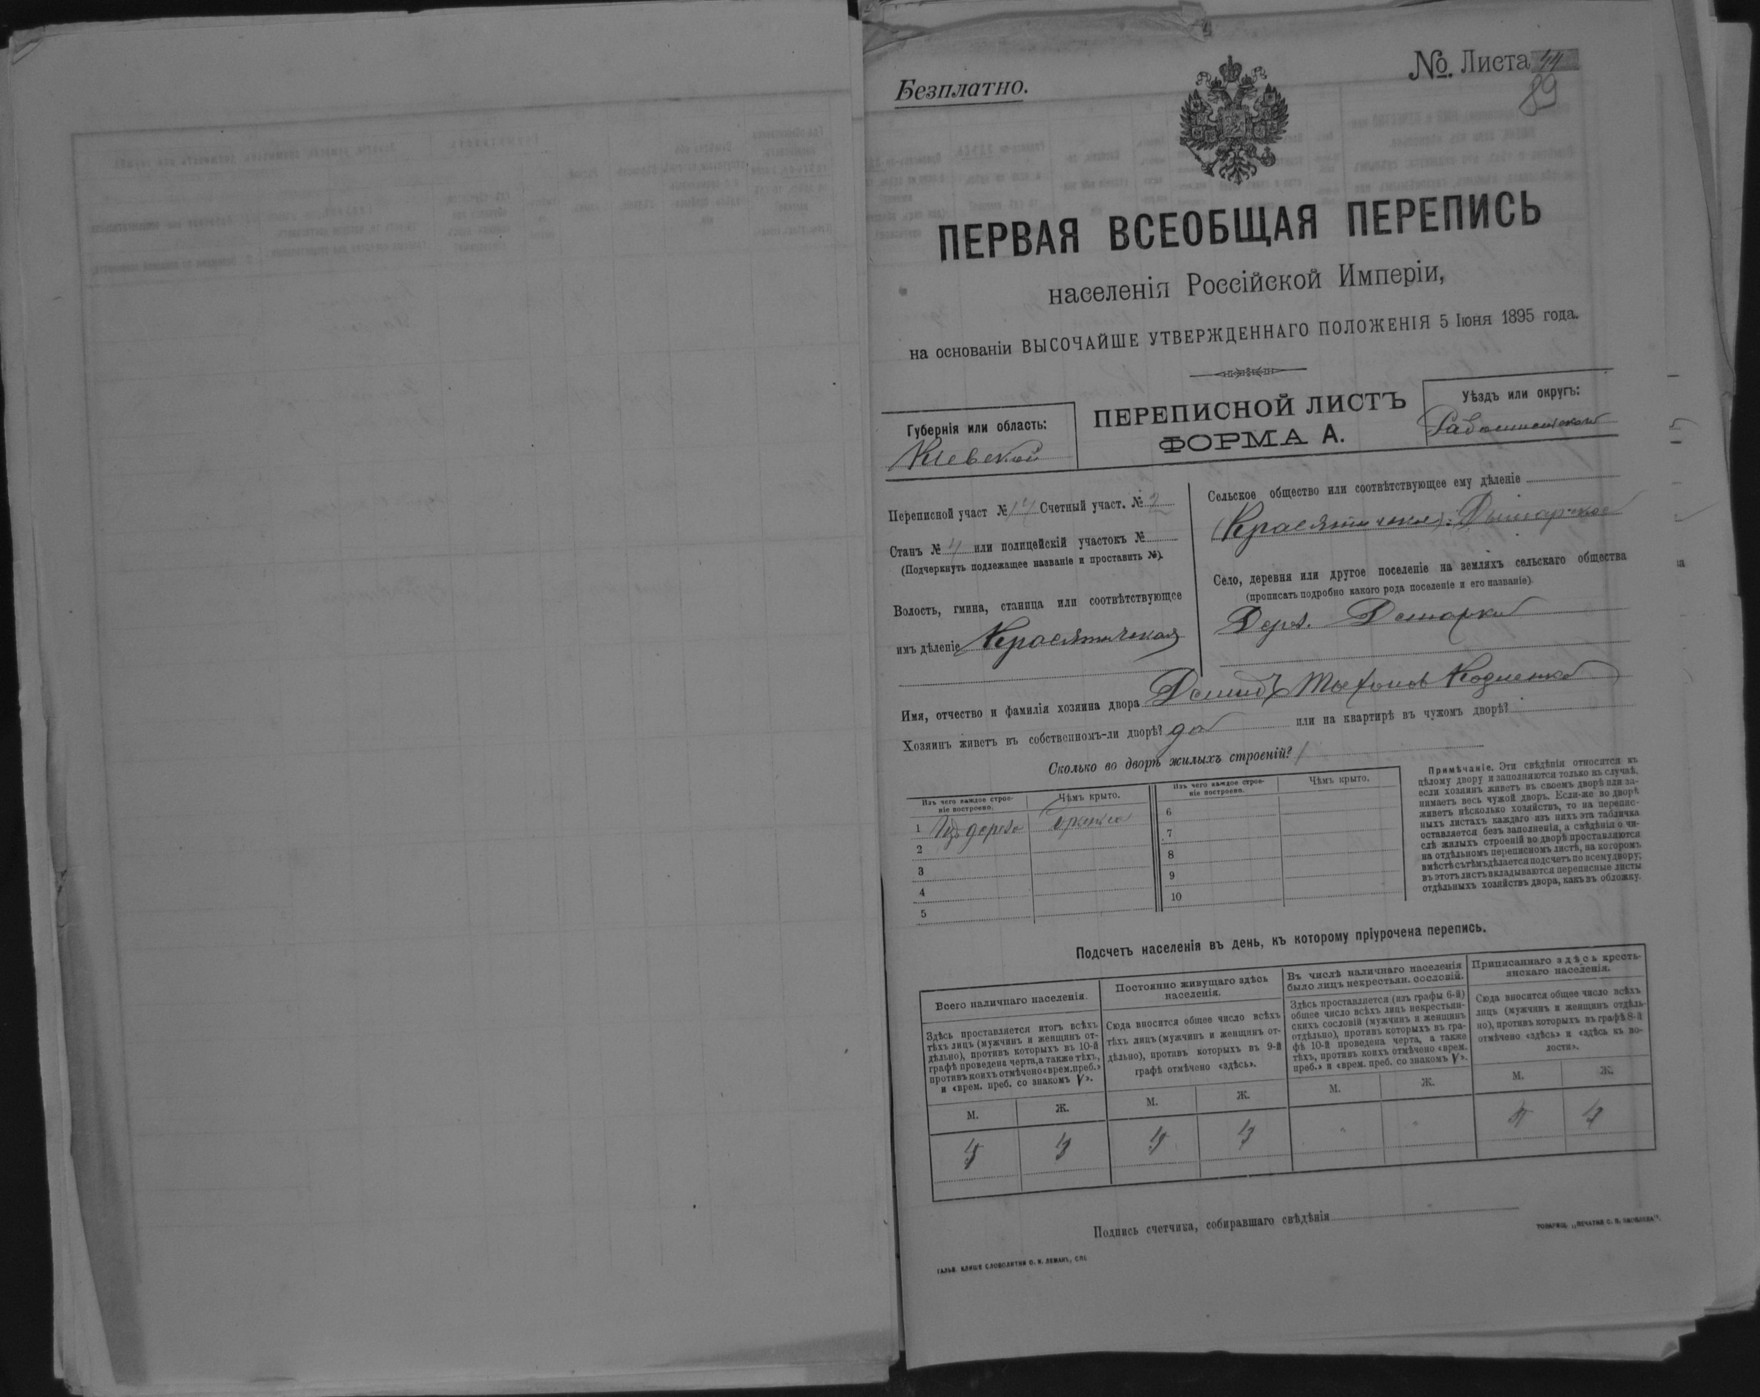 Безплатно.
№. Листа 44
89
ПЕРВАЯ ВСЕОБЩАЯ ПЕРЕПИСЬ
населенія Россійской Имперіи,
на основаніи ВЫСОЧАЙШЕ УТВЕРЖДЕННАГО ПОЛОЖЕНІЯ 5 Іюня 1895 года.
Губернія или область:
Кіевской
ПЕРЕПИСНОЙ ЛИСТЪ
ФОРМА А.
Уѣздъ или округъ:
Радомысльской
Переписной участ № 14 Счетный участ. № 2
Станъ № 4 или полицейскій участокъ №
(Подчеркнуть подлежащее названіе и проставить №).
Волость, гмина, станица или соотвѣтствующее
имъ дѣленіе Красятичская
Сельское общество или соотвѣтствующее ему дѣленіе
Село, деревня или другое поселеніе на земляхъ сельскаго общества
(прописать подробно какого рода поселеніе и его названіе)
Дер.
Имя, отчество и фамилія хозяина двора Демидъ
Хозяинъ живетъ въ собственномъ-ли дворѣ? да или на квартирѣ въ чужомъ дворѣ?
Сколько во дворѣ жилыхъ строеній? 1
Изъ чего каждое строе-
ніе построено.
Чѣмъ крыто.
Изъ чего каждое строе-
ніе построено.
Чѣмъ крыто.
1 Изъ дерева
2
3
4
5
6
7
8
9
10
Примѣчаніе. Эти свѣдѣнія относятся къ
цѣлому двору и заполняются только въ случаѣ,
если хозяинъ живетъ въ своемъ дворѣ или за-
нимаетъ весь чужой дворъ. Если-же во дворѣ
живетъ нѣсколько хозяйствъ, то на перепис-
ныхъ листахъ каждаго изъ нихъ эта табличка
оставляется безъ заполненія, а свѣдѣнія о чи-
слѣ жилыхъ строеній во дворѣ проставляются
на отдѣльномъ переписномъ листѣ, на которомъ
вмѣстѣ съ тѣмъ дѣлается подсчетъ по всему двору;
въ этотъ листъ вкладываются переписные листы
отдѣльныхъ хозяйствъ двора, какъ въ обложку.
Подсчетъ населенія въ день, къ которому пріурочена перепись.
Всего наличнаго населенія.
Здѣсь проставляется итогъ всѣхъ
тѣхъ лицъ (мужчинъ и женщинъ от-
дѣльно), противъ которыхъ въ 10-й
графѣ проведена черта, а также тѣхъ,
противъ коихъ отмѣчено «врем. преб.»
и «врем. преб. со знакомъ V».
М. Ж.
Постоянно живущаго здѣсь
населенія.
Сюда вносится общее число всѣхъ
тѣхъ лицъ (мужчинъ и женщинъ от-
дѣльно), противъ которыхъ въ 9-й
графѣ отмѣчено «здѣсь».
М. Ж.
Въ числѣ наличнаго населенія
было лицъ некрестьян. сословій.
Здѣсь проставляется (изъ графы 6-й)
общее число всѣхъ лицъ некрестьян-
скихъ сословій (мужчинъ и женщинъ
отдѣльно), противъ которыхъ въ гра-
фѣ 10-й проведена черта, а также
тѣхъ, противъ коихъ отмѣчено «врем.
преб.» и «врем. преб. со знакомъ V».
М. Ж.
Приписаннаго здѣсь кресть-
янскаго населенія.
Сюда вносится общее число всѣхъ
лицъ (мужчинъ и женщинъ отдѣль-
но), противъ которыхъ въ графѣ 8-й
отмѣчено «здѣсь» и «здѣсь въ во-
лости».
М. Ж.
Подпись счетчика, собиравшаго свѣдѣнія
ГАЛЬВ. КЛИШЕ СЛОВОЛИТНИ О. И. ЛЕМАНЪ, СПБ
ТОВАРИЩ. „ПЕЧАТНЯ С. П. ЯКОВЛЕВА“.